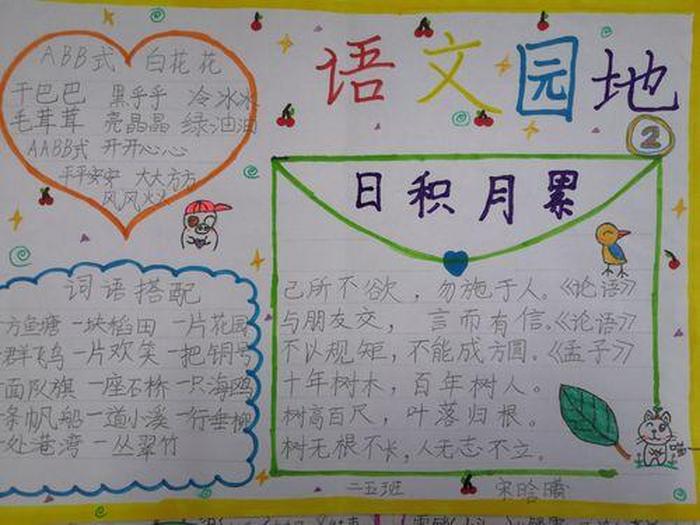 语文园地
2
ABB式 白花花
干巴巴 黑乎乎 冷冰冰
毛茸茸 亮晶晶 绿油油
AABB式 开开心心
平平安安 大大方方
风风火火
词语搭配
一方鱼塘 一块稻田 一片花园
一群飞鸟 一片欢笑 一把铜号
一面队旗 一座石桥 一只海鸥
一条帆船 一道小溪 一行垂柳
一处港湾 一丛翠竹
日积月累
己所不欲，勿施于人。《论语》
与朋友交，言而有信。《论语》
不以规矩，不能成方圆。《孟子》
十年树木，百年树人。
树高百尺，叶落归根。
树无根不长，人无志不立。
二五班